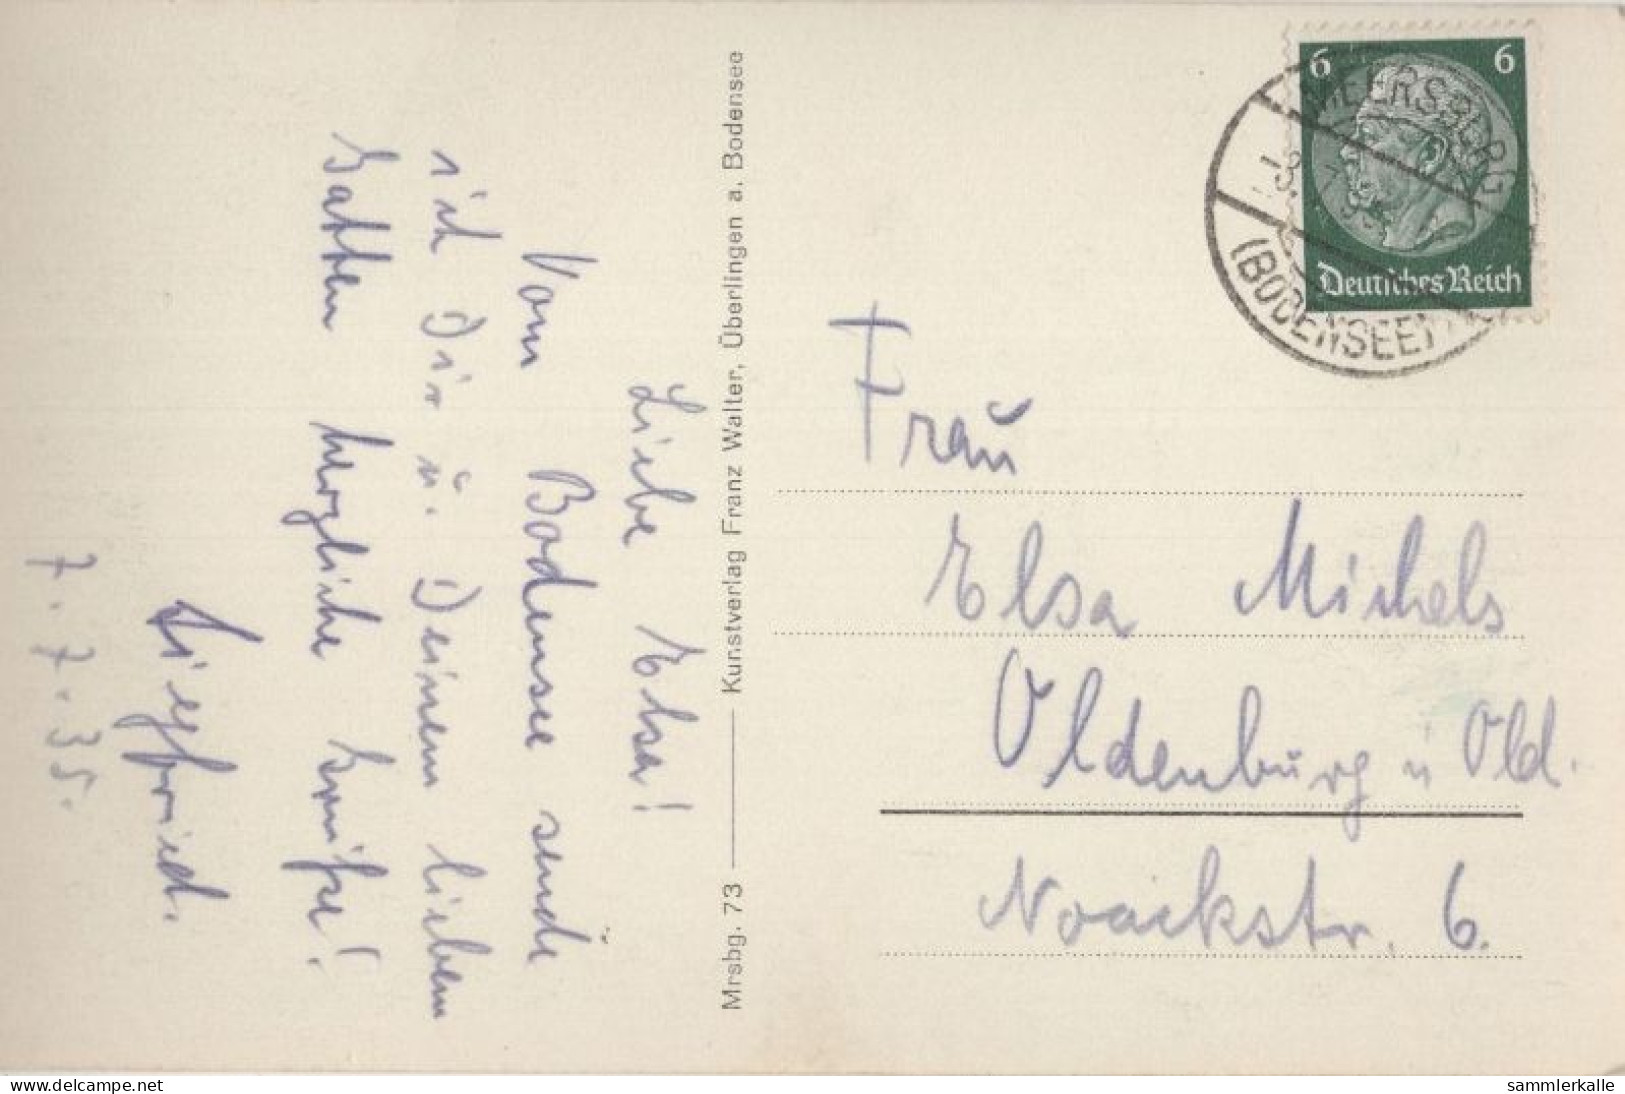 Liebe Elsa!
Vom Bodensee sende
ich Dir u. Deinem lieben
Gatten herzliche Grüße!
Siegfried.
7. 7. 35.
Mrsbg. 73 Kunstverlag Franz Walter, Überlingen a. Bodensee
6 6
Deutsches Reich
MEERSBURG
-8. 7. 35
(BODENSEE)
Frau
Elsa Michels
Oldenburg i. Old.
Noackstr. 6.
www.delcampe.net
sammlerkalle